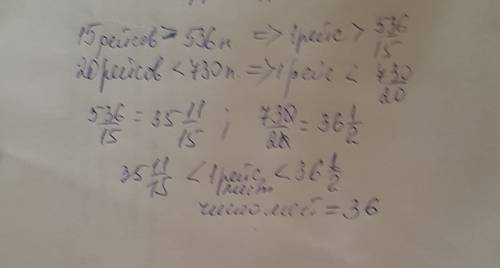 15 рейсов > 536 п => 1 рейс > 536/15
20 рейсов < 730 п. => 1 рейс < 730/20
536/15 = 35 11/15 ; 730/20 = 36 1/2
35 11/15 < 1 рейс < 36 1/2
мест
число мест = 36